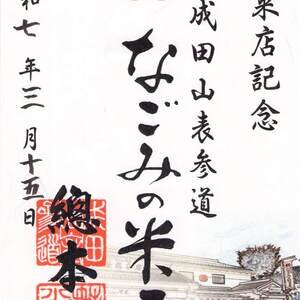 来店記念
成田山表参道
なごみの米
總本
和七年三月十五日